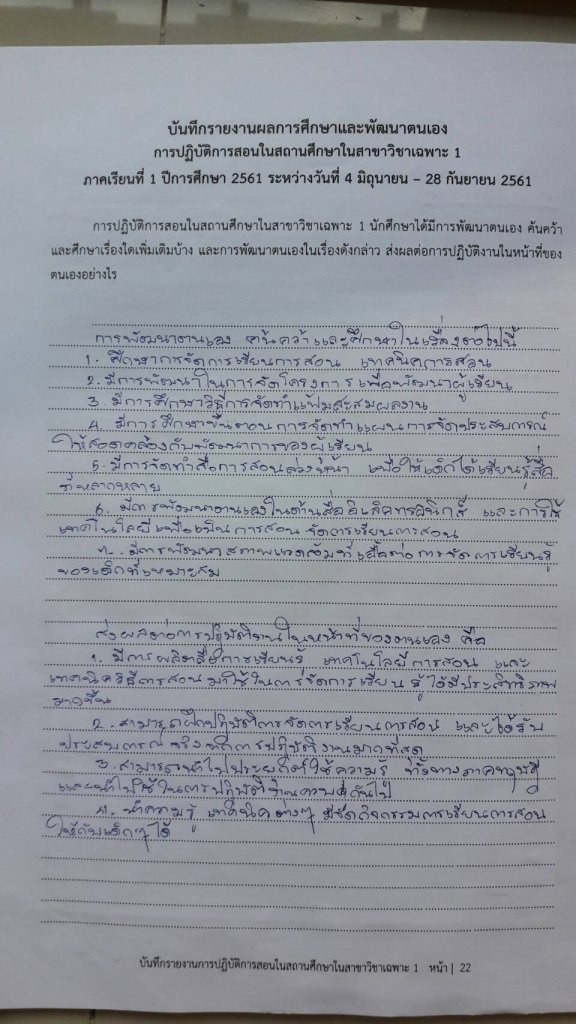 บันทึกรายงานผลการศึกษาและพัฒนาตนเอง
การปฏิบัติการสอนในสถานศึกษาในสาขาวิชาเฉพาะ 1
ภาคเรียนที่ 1 ปีการศึกษา 2561 ระหว่างวันที่ 4 มิถุนายน – 28 กันยายน 2561
การปฏิบัติการสอนในสถานศึกษาในสาขาวิชาเฉพาะ 1 นักศึกษาได้มีการพัฒนาตนเอง ค้นคว้า
และศึกษาเรื่องใดเพิ่มเติมบ้าง และการพัฒนาตนเองในเรื่องดังกล่าว ส่งผลต่อการปฏิบัติงานในหน้าที่ของ
ตนเองอย่างไร
การพัฒนาตนเอง ค้นคว้าและศึกษาในเรื่องต่อไปนี้
1. ศึกษาการจัดการเรียนการสอน เทคนิคการสอน
2. มีการพัฒนาในการจัดโครงการเพื่อพัฒนาผู้เรียน
3. มีการศึกษาวิธีการจัดทำแฟ้มสะสมผลงาน
4. มีการศึกษาขั้นตอนการจัดทำแผนการจัดประสบการณ์
ให้สอดคล้องกับพัฒนาการของผู้เรียน
5. มีการจัดทำสื่อการสอนล่วงหน้า เพื่อให้เด็กได้เรียนรู้สื่อ
ที่หลากหลาย
6. มีการพัฒนาตนเองในด้านสื่ออิเล็คทรอนิกส์ และการใช้
เทคโนโลยีเพื่อเป็นการสอน จัดการเรียนการสอน
7. มีการพัฒนาสภาพแวดล้อมที่เอื้อต่อการจัดการเรียนรู้
ของเด็กที่เหมาะสม
ส่งผลต่อการปฏิบัติงานในหน้าที่ของตนเอง คือ
1. มีการผลิตสื่อการเรียนรู้ เทคโนโลยีการสอน และ
เทคนิควิธีการสอนมาใช้ในการจัดการเรียนรู้ได้มีประสิทธิภาพ
มากขึ้น
2. สามารถฝึกปฏิบัติการจัดการเรียนการสอน และได้รับ
ประสบการณ์จริงจากการปฏิบัติงานมากที่สุด
3. สามารถนำไปประยุกต์ใช้ความรู้ ทั้งทางภาคทฤษฎี
และนำไปใช้ในการปฏิบัติงานควบคู่กันไป
4. นำความรู้ เทคนิคต่างๆ มาจัดกิจกรรมการเรียนการสอน
ให้กับเด็กๆ ได้
บันทึกรายงานการปฏิบัติการสอนในสถานศึกษาในสาขาวิชาเฉพาะ 1 หน้า | 22